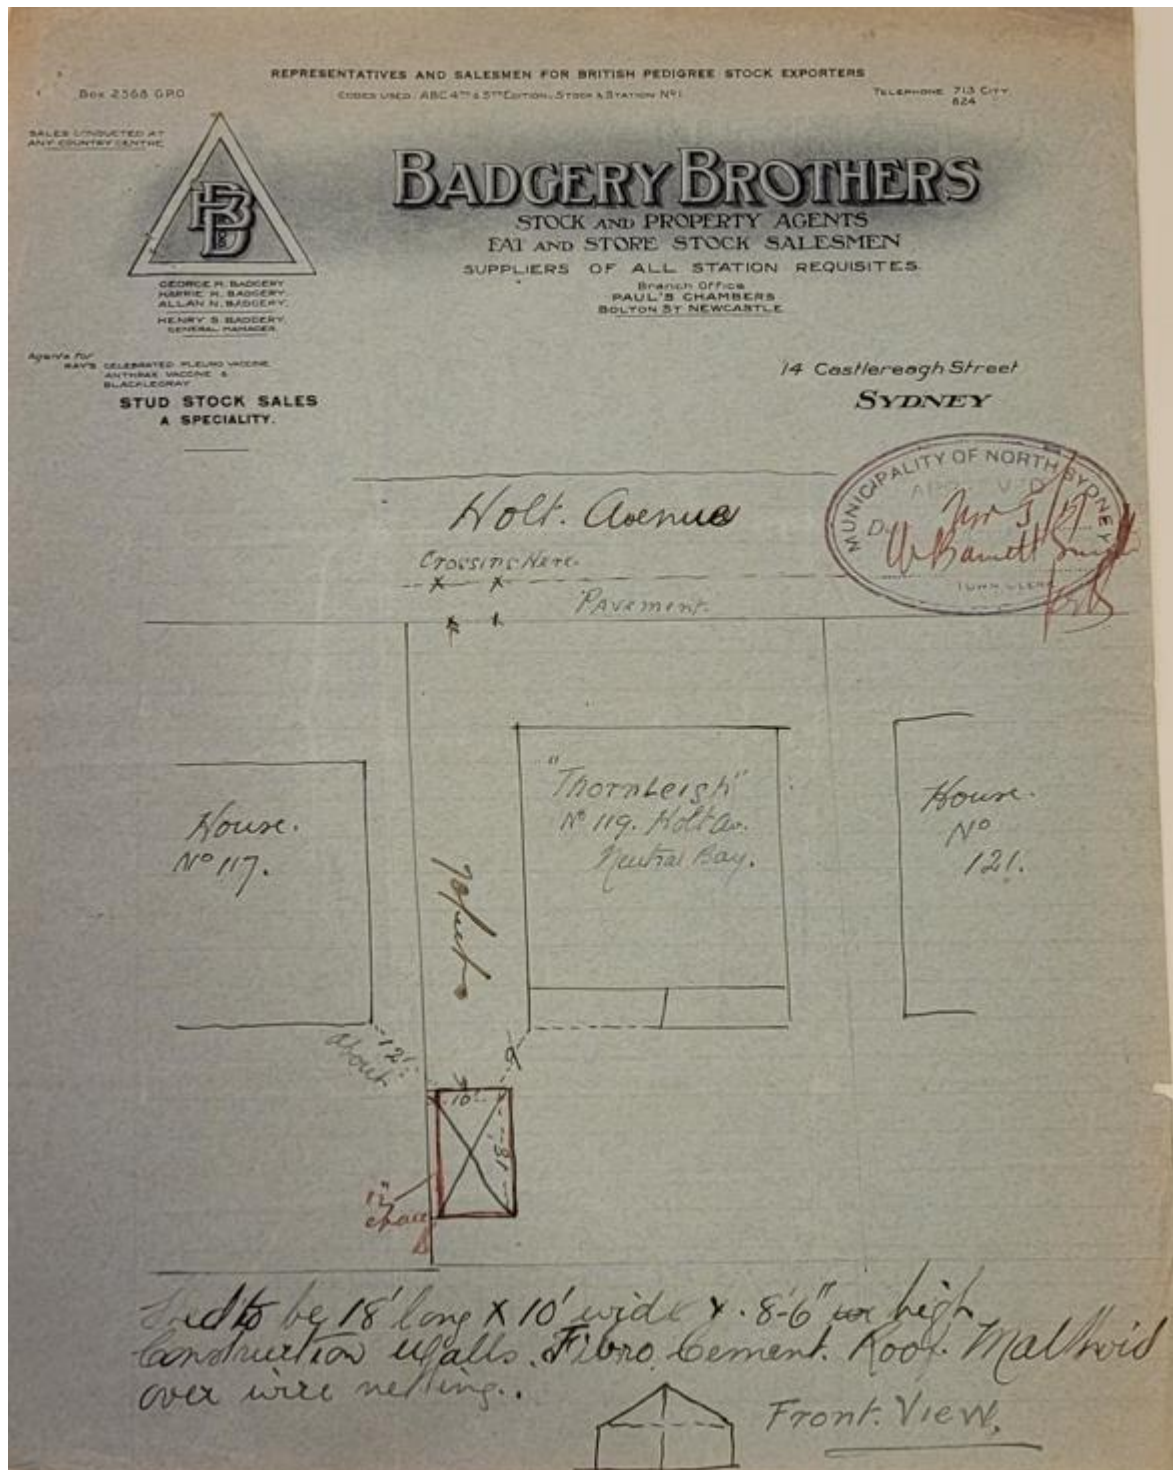 REPRESENTATIVES AND SALESMEN FOR BRITISH PEDIGREE STOCK EXPORTERS
Box 2568 G.P.O
CODES USED: ABC 4TH & 5TH EDITION. STOCK & STATION No 1
TELEPHONE 713 CITY.
824
SALES CONDUCTED AT
ANY COUNTRY CENTRE
BADGERY BROTHERS
STOCK AND PROPERTY AGENTS
FAT AND STORE STOCK SALESMEN
SUPPLIERS OF ALL STATION REQUISITES.
Branch Office
PAUL'S CHAMBERS
BOLTON ST NEWCASTLE
GEORGE H. BADGERY
HARRIE H. BADGERY.
ALLAN N. BADGERY.
HENRY S. BADGERY.
GENERAL MANAGER.
Agents for
RAY'S CELEBRATED PLEURO VACCINE
ANTHRAX VACCINE &
BLACKLEGRAY
STUD STOCK SALES
A SPECIALITY.
14 Castlereagh Street
SYDNEY
MUNICIPALITY OF NORTH SYDNEY
APPROVED
W Barnett Smith
TOWN CLERK
Holt. Avenue
Crossing Here.
Pavement.
House.
No 117.
"Thornleigh"
No 119. Holt Av.
Neutral Bay.
House.
No
121.
12'
about
10'
18'
12"
space
Shed to be 18' long X 10' wide X 8'-6" high
Construction Walls. Fibro Cement. Roof. Malthoid
over wire netting..
Front. View.